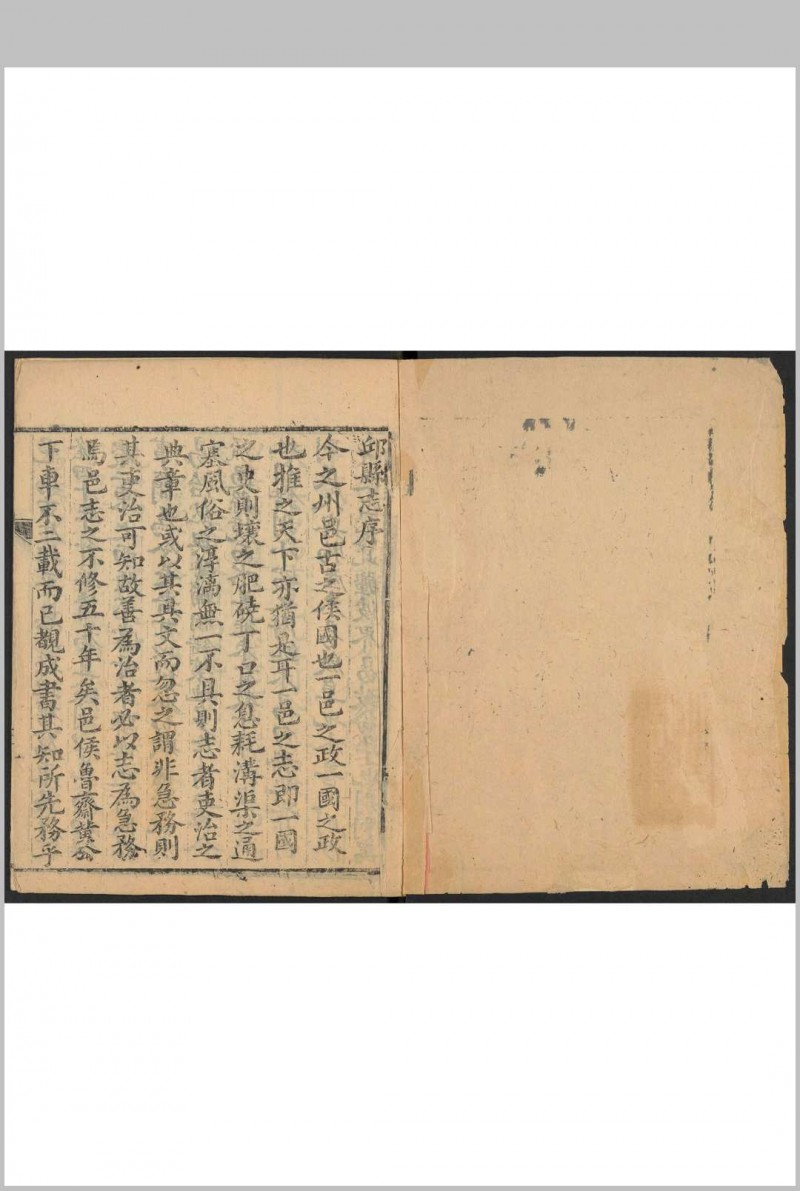 邱縣志序
今之州邑古之侯國也一邑之政一國之政
也推之天下亦猶是耳一邑之志即一國
之史則壤之肥磽丁口之息耗溝渠之通
塞風俗之淳漓無一不具則志者吏治之
典章也或以其具文而忽之謂非急務則
其吏治可知故善為治者必以志為急務
焉邑志之不修五十年矣邑侯魯齋黄公
下車不二載而已覩成書其知所先務乎